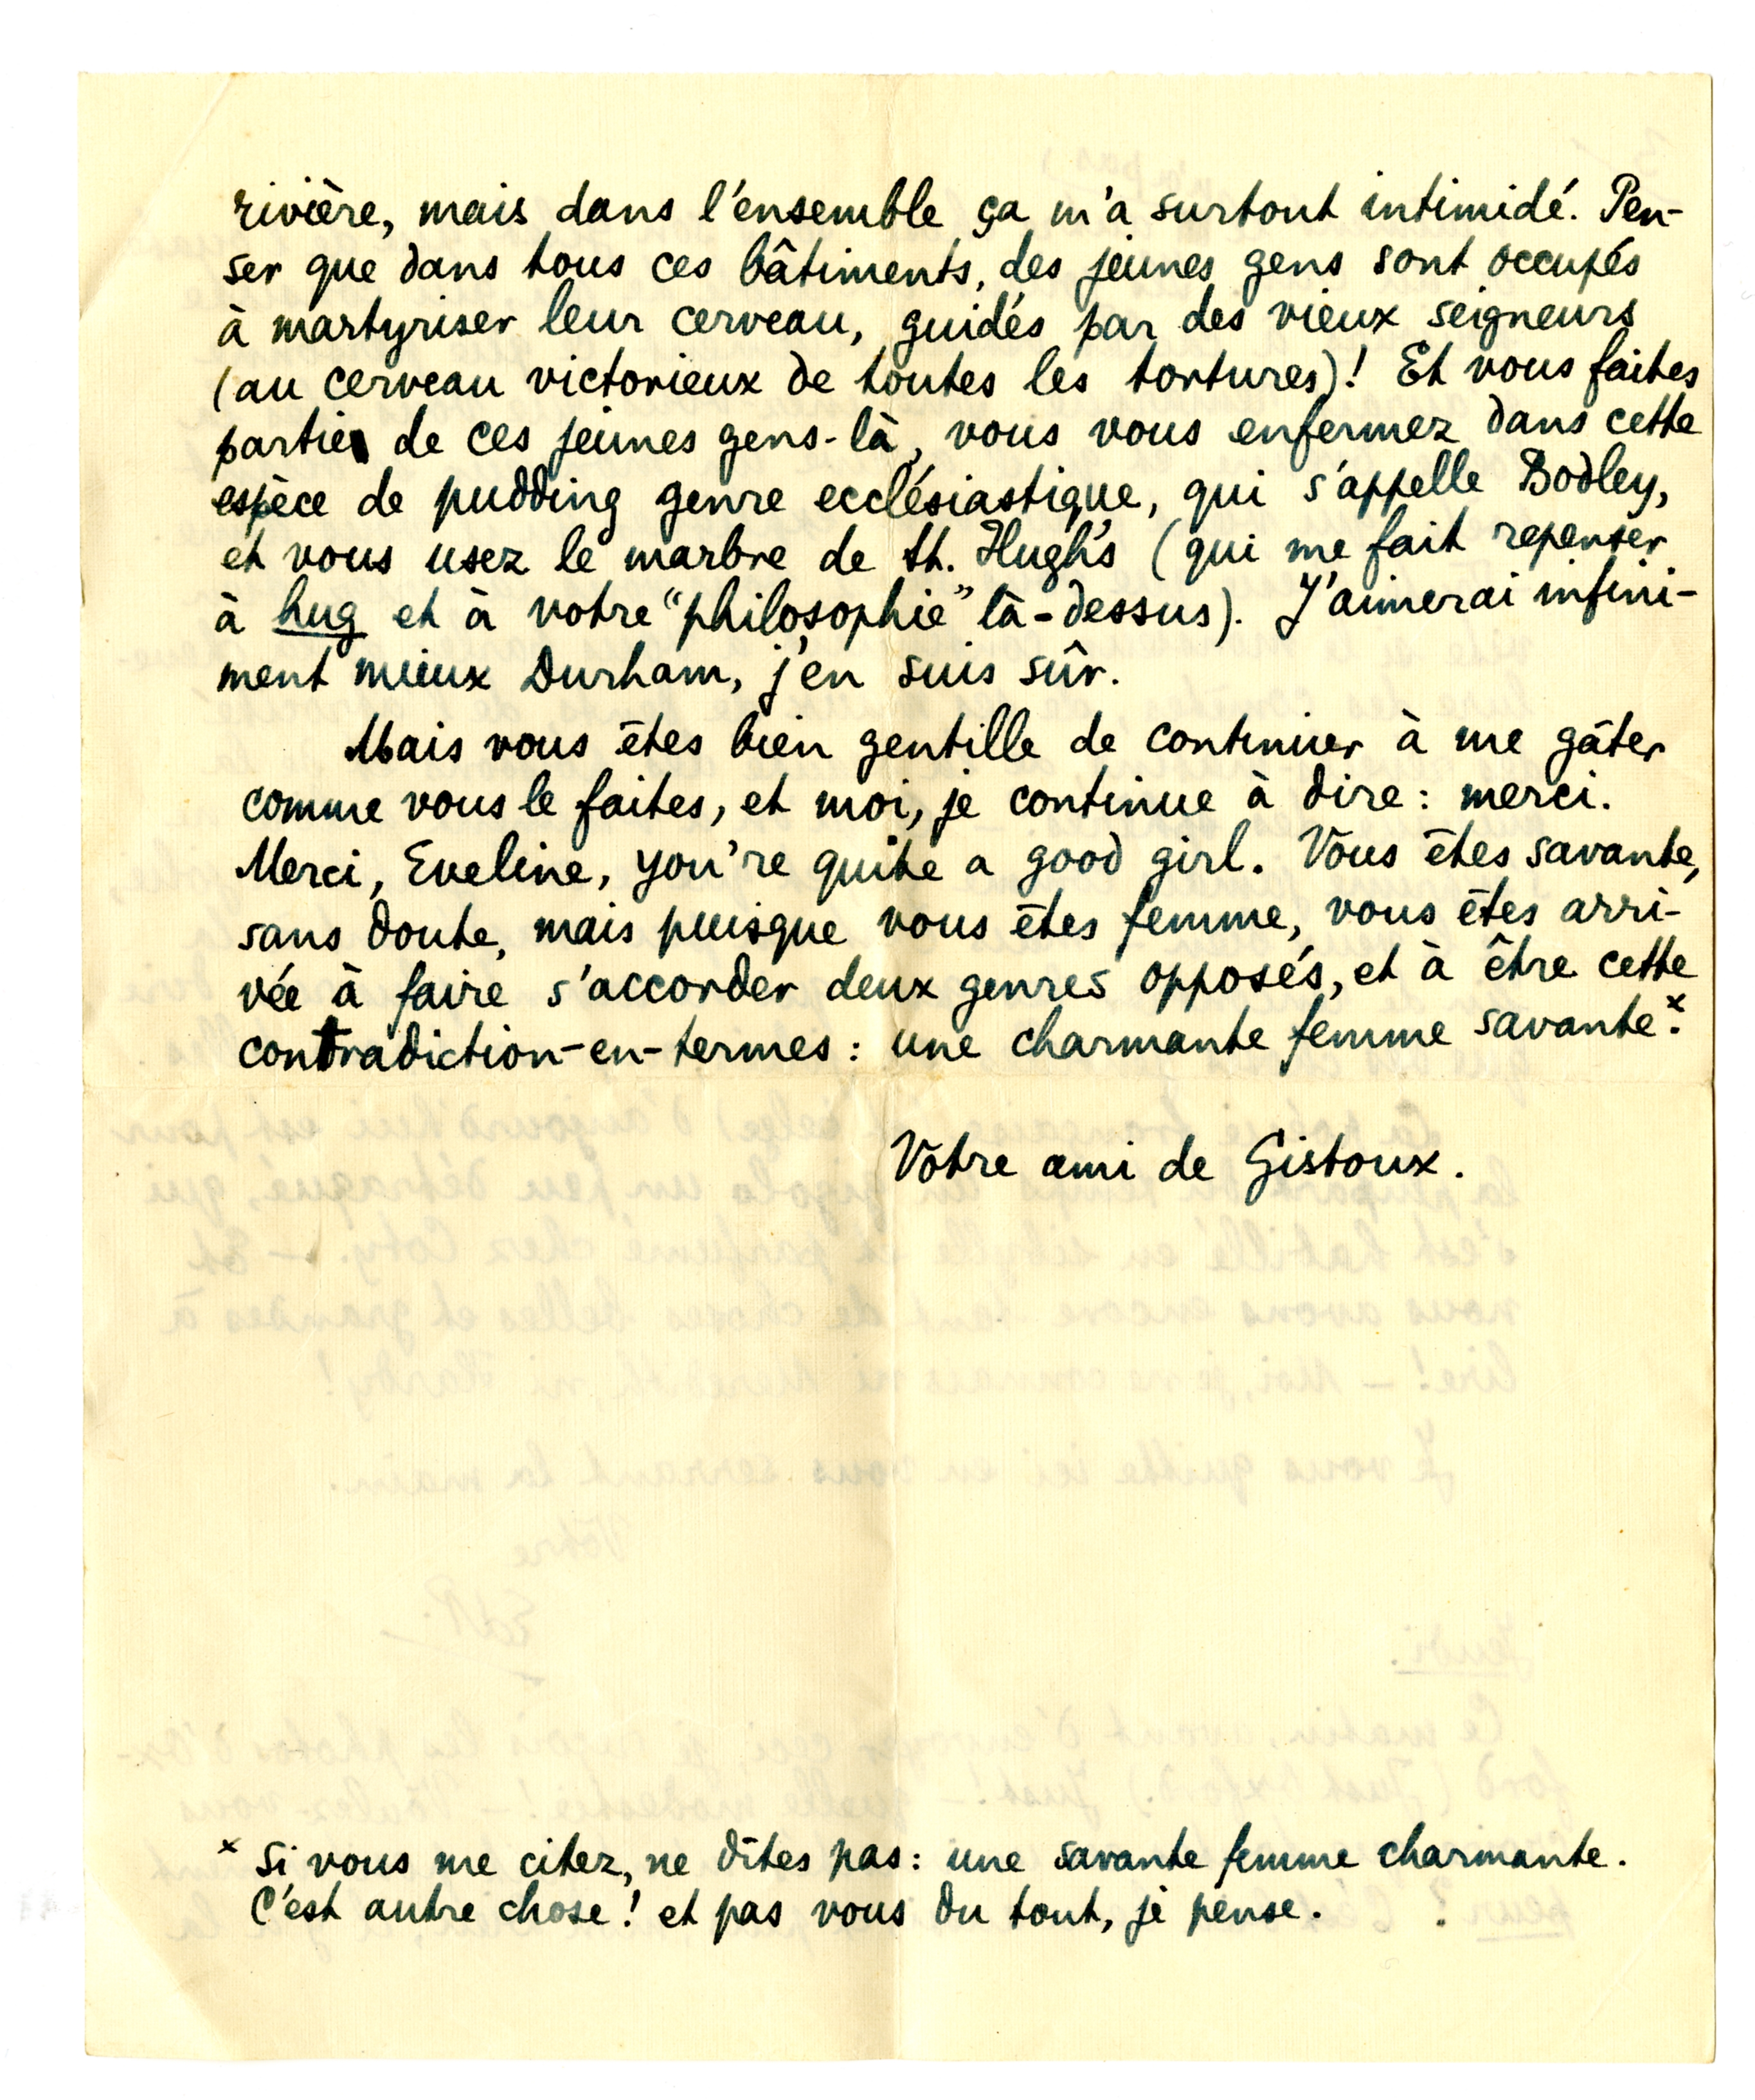 rivière, mais dans l'ensemble ça m'a surtout intimidé. Pen-
ser que dans tous ces bâtiments, des jeunes gens sont occupés
à martyriser leur cerveau, guidés par des vieux seigneurs
(au cerveau victorieux de toutes les tortures)! Et vous faites
partie de ces jeunes gens-là, vous vous enfermez dans cette
espèce de pudding genre ecclésiastique, qui s'appelle Bodley,
et vous usez le marbre de St. Hugh's (qui me fait repenser
à hug et à votre “philosophie” là-dessus). J'aimerai infini-
ment mieux Durham, j'en suis sûr.
Mais vous êtes bien gentille de continuer à me gâter
comme vous le faites, et moi, je continue à dire: merci.
Merci, Eveline, you're quite a good girl. Vous êtes savante,
sans doute, mais puisque vous êtes femme, vous êtes arri-
vée à faire s'accorder deux genres opposés, et à être cette
contradiction-en-termes: une charmante femme savante.*
Votre ami de Gistoux.
* Si vous me citez, ne dîtes pas: une savante femme charmante.
C'est autre chose! et pas vous du tout, je pense.